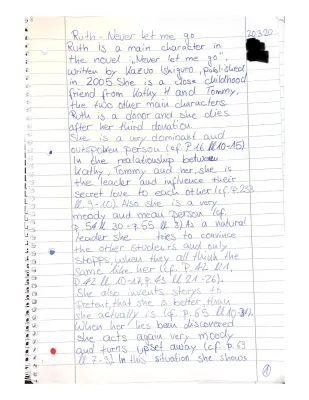 Ruth - Never let me go 20.3.20
Ruth is a main character in
the novel "Never let me go",
written by Kazuo Ishiguro, published
in 2005. She is a close childhood
friend from Kathy H and Tommy,
the two other main characters.
Ruth is a donor and she dies
after her third donation.
She is a very dominant and
outspoken person (cf. P.16 ll 10-15).
In the realationship between
Kathy, Tommy and her, she is
the leader and influence their
secret love to each other (cf. p.253
ll. 9-10). Also she is a very
moody and mean person (cf.
p. 54 ll. 30 - p.55 ll. 3). As a natural
leader she tries to convince
the other students and only
stopps, when they all think the
same like her (cf. p.42 ll 1,
p.42 ll 10-17, p.43 ll 21-26).
She also invents storys to
pretent, that she is better, than
she actually is (cf. p.65 ll 10-31).
When her lies been discovered
she acts again very moody
and turns upset away (cf. p.63
ll 7-9). In this situation she shows
1